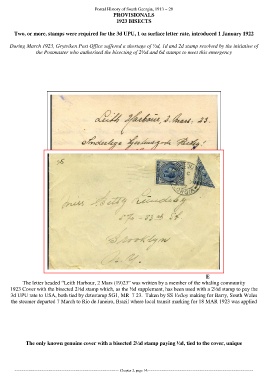 Postal History of South Georgia, 1911 – 20
PROVISIONALS
1923 BISECTS
Two, or more, stamps were required for the 3d UPU, 1 oz surface letter rate, introduced 1 January 1922
During March 1923, Grytviken Post Office suffered a shortage of ½d, 1d and 2d stamp resolved by the initiative of
the Postmaster who authorised the bisecting of 2½d and 6d stamps to meet this emergency
Leith Harbour, 2 Mars. 23.
Miss Betty
Brooklyn
N. Y.
The letter headed "Leith Harbour, 2 Mars (19)23" was written by a member of the whaling community
1923 Cover with the bisected 2½d stamp which, as the ½d supplement, has been used with a 2½d stamp to pay the
3d UPU rate to USA, both tied by datestamp SG1, MR 7 23. Taken by SS making for Barry, South Wales
the steamer departed 7 March to Rio de Janeiro, Brazil where local transit marking for 18 MAR 1923 was applied
The only known genuine cover with a bisected 2½d stamp paying ½d, tied to the cover, unique